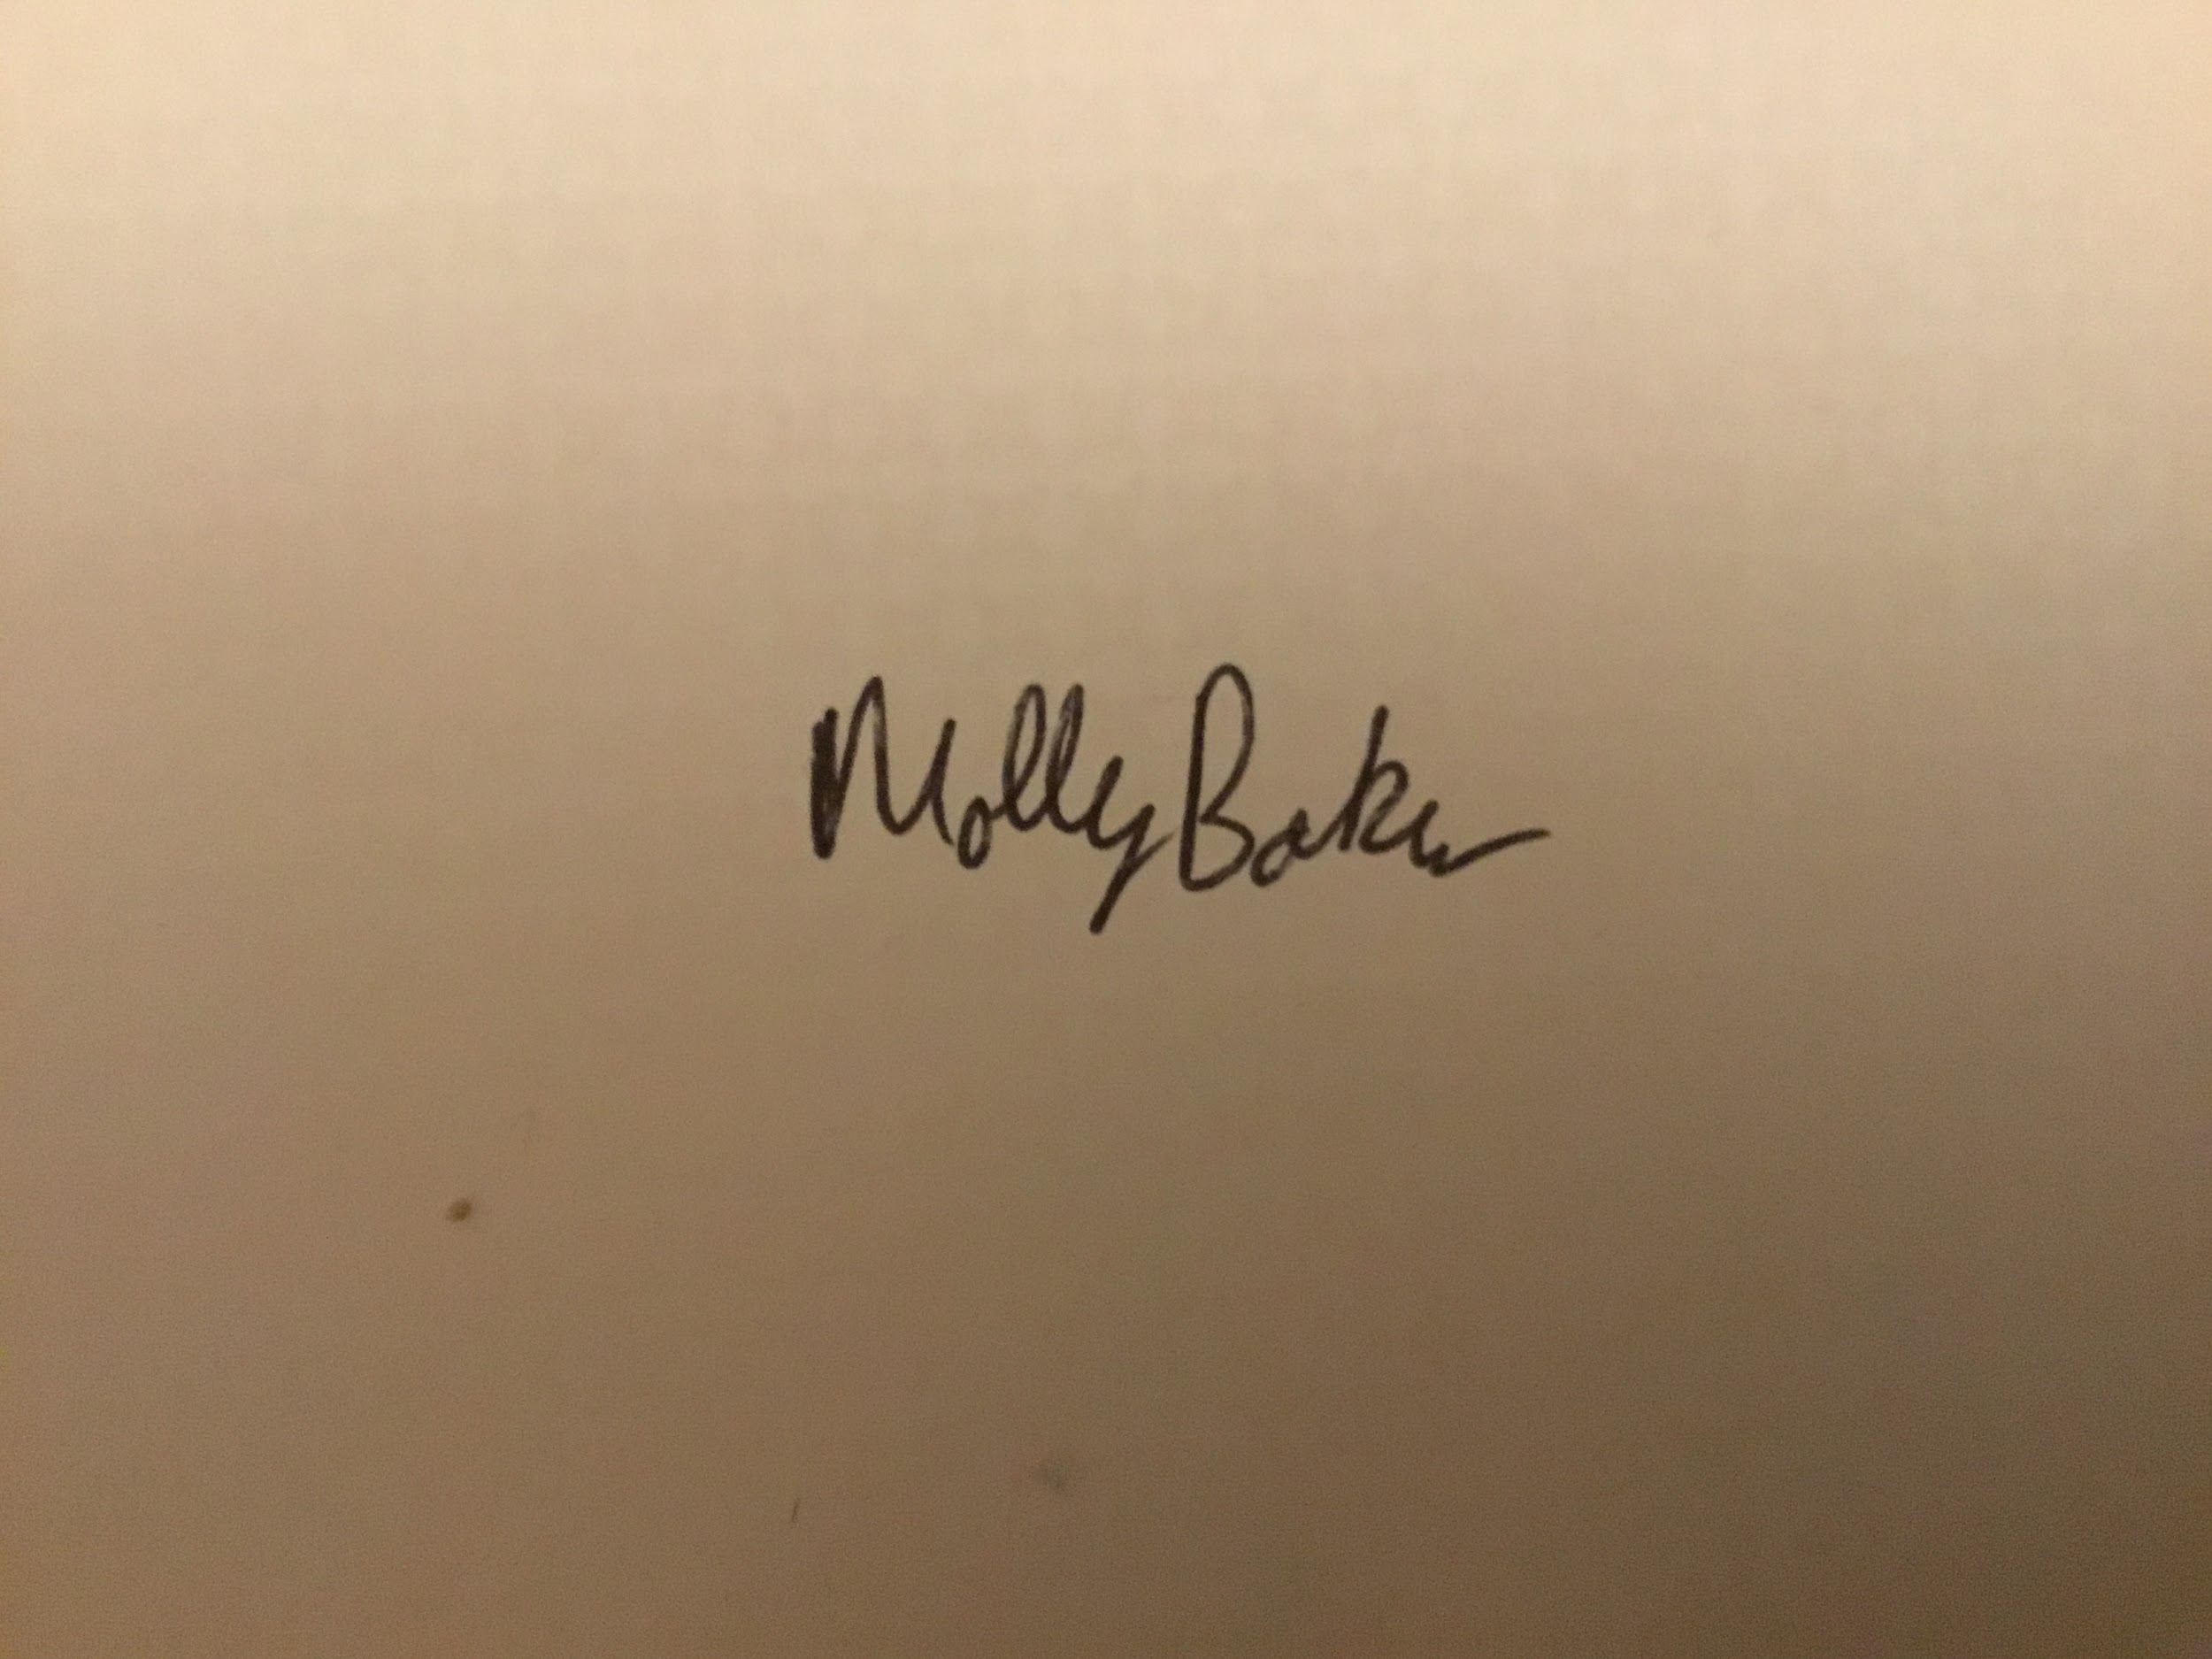 Molly Baker